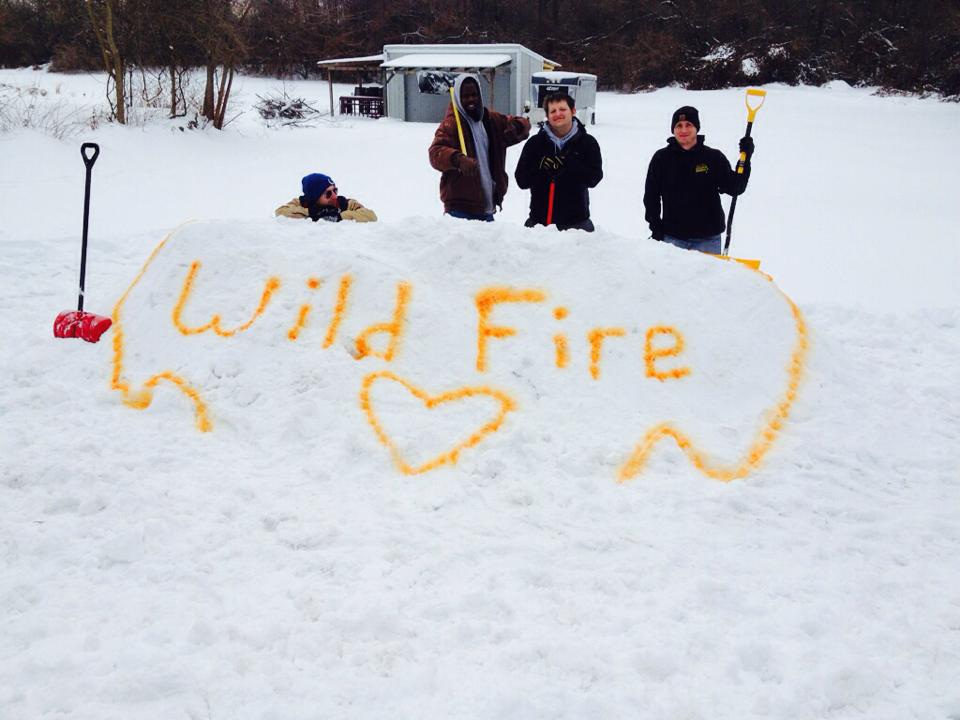 Wild Fire